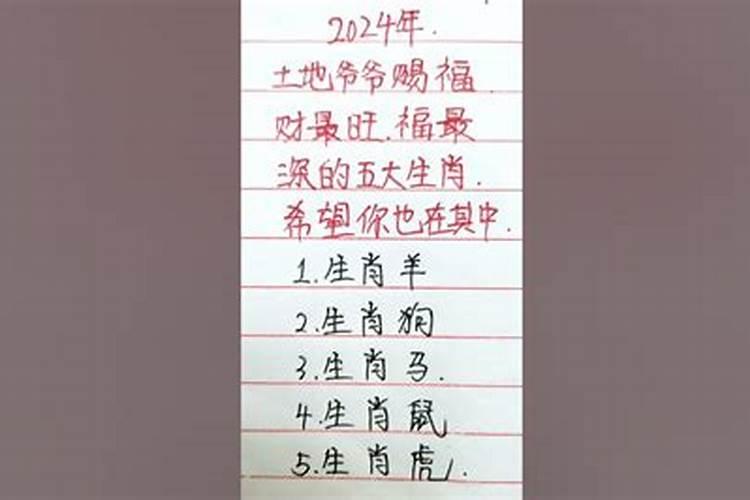 2024年.
土地爷爷赐福.
财最旺.福最
深的五大生肖.
希望你也在其中.
1.生肖羊
2.生肖狗
3.生肖马.
4.生肖鼠
5.生肖虎.